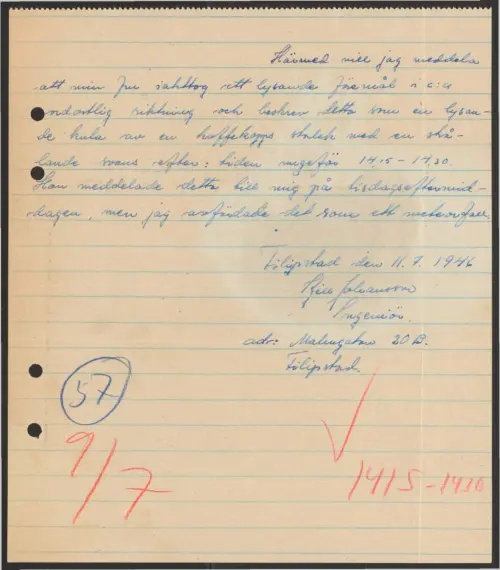 Härmed vill jag meddela
att min fru iakttog ett lysande föremål i c:a
nordostlig riktning och beskrev detta som en lysan-
de kula av en kaffekopps storlek med en strå-
lande svans efter: tiden ungefär 14.15 - 14.30.
Hon meddelade detta till mig på tisdagseftermid-
dagen, men jag avfärdade det som ett meteorfall.
Filipstad den 11.7.1946
Johansson
Ingeniör.
adr: Malmgatan 20 B.
Filipstad.
57
9/7
1415-1430